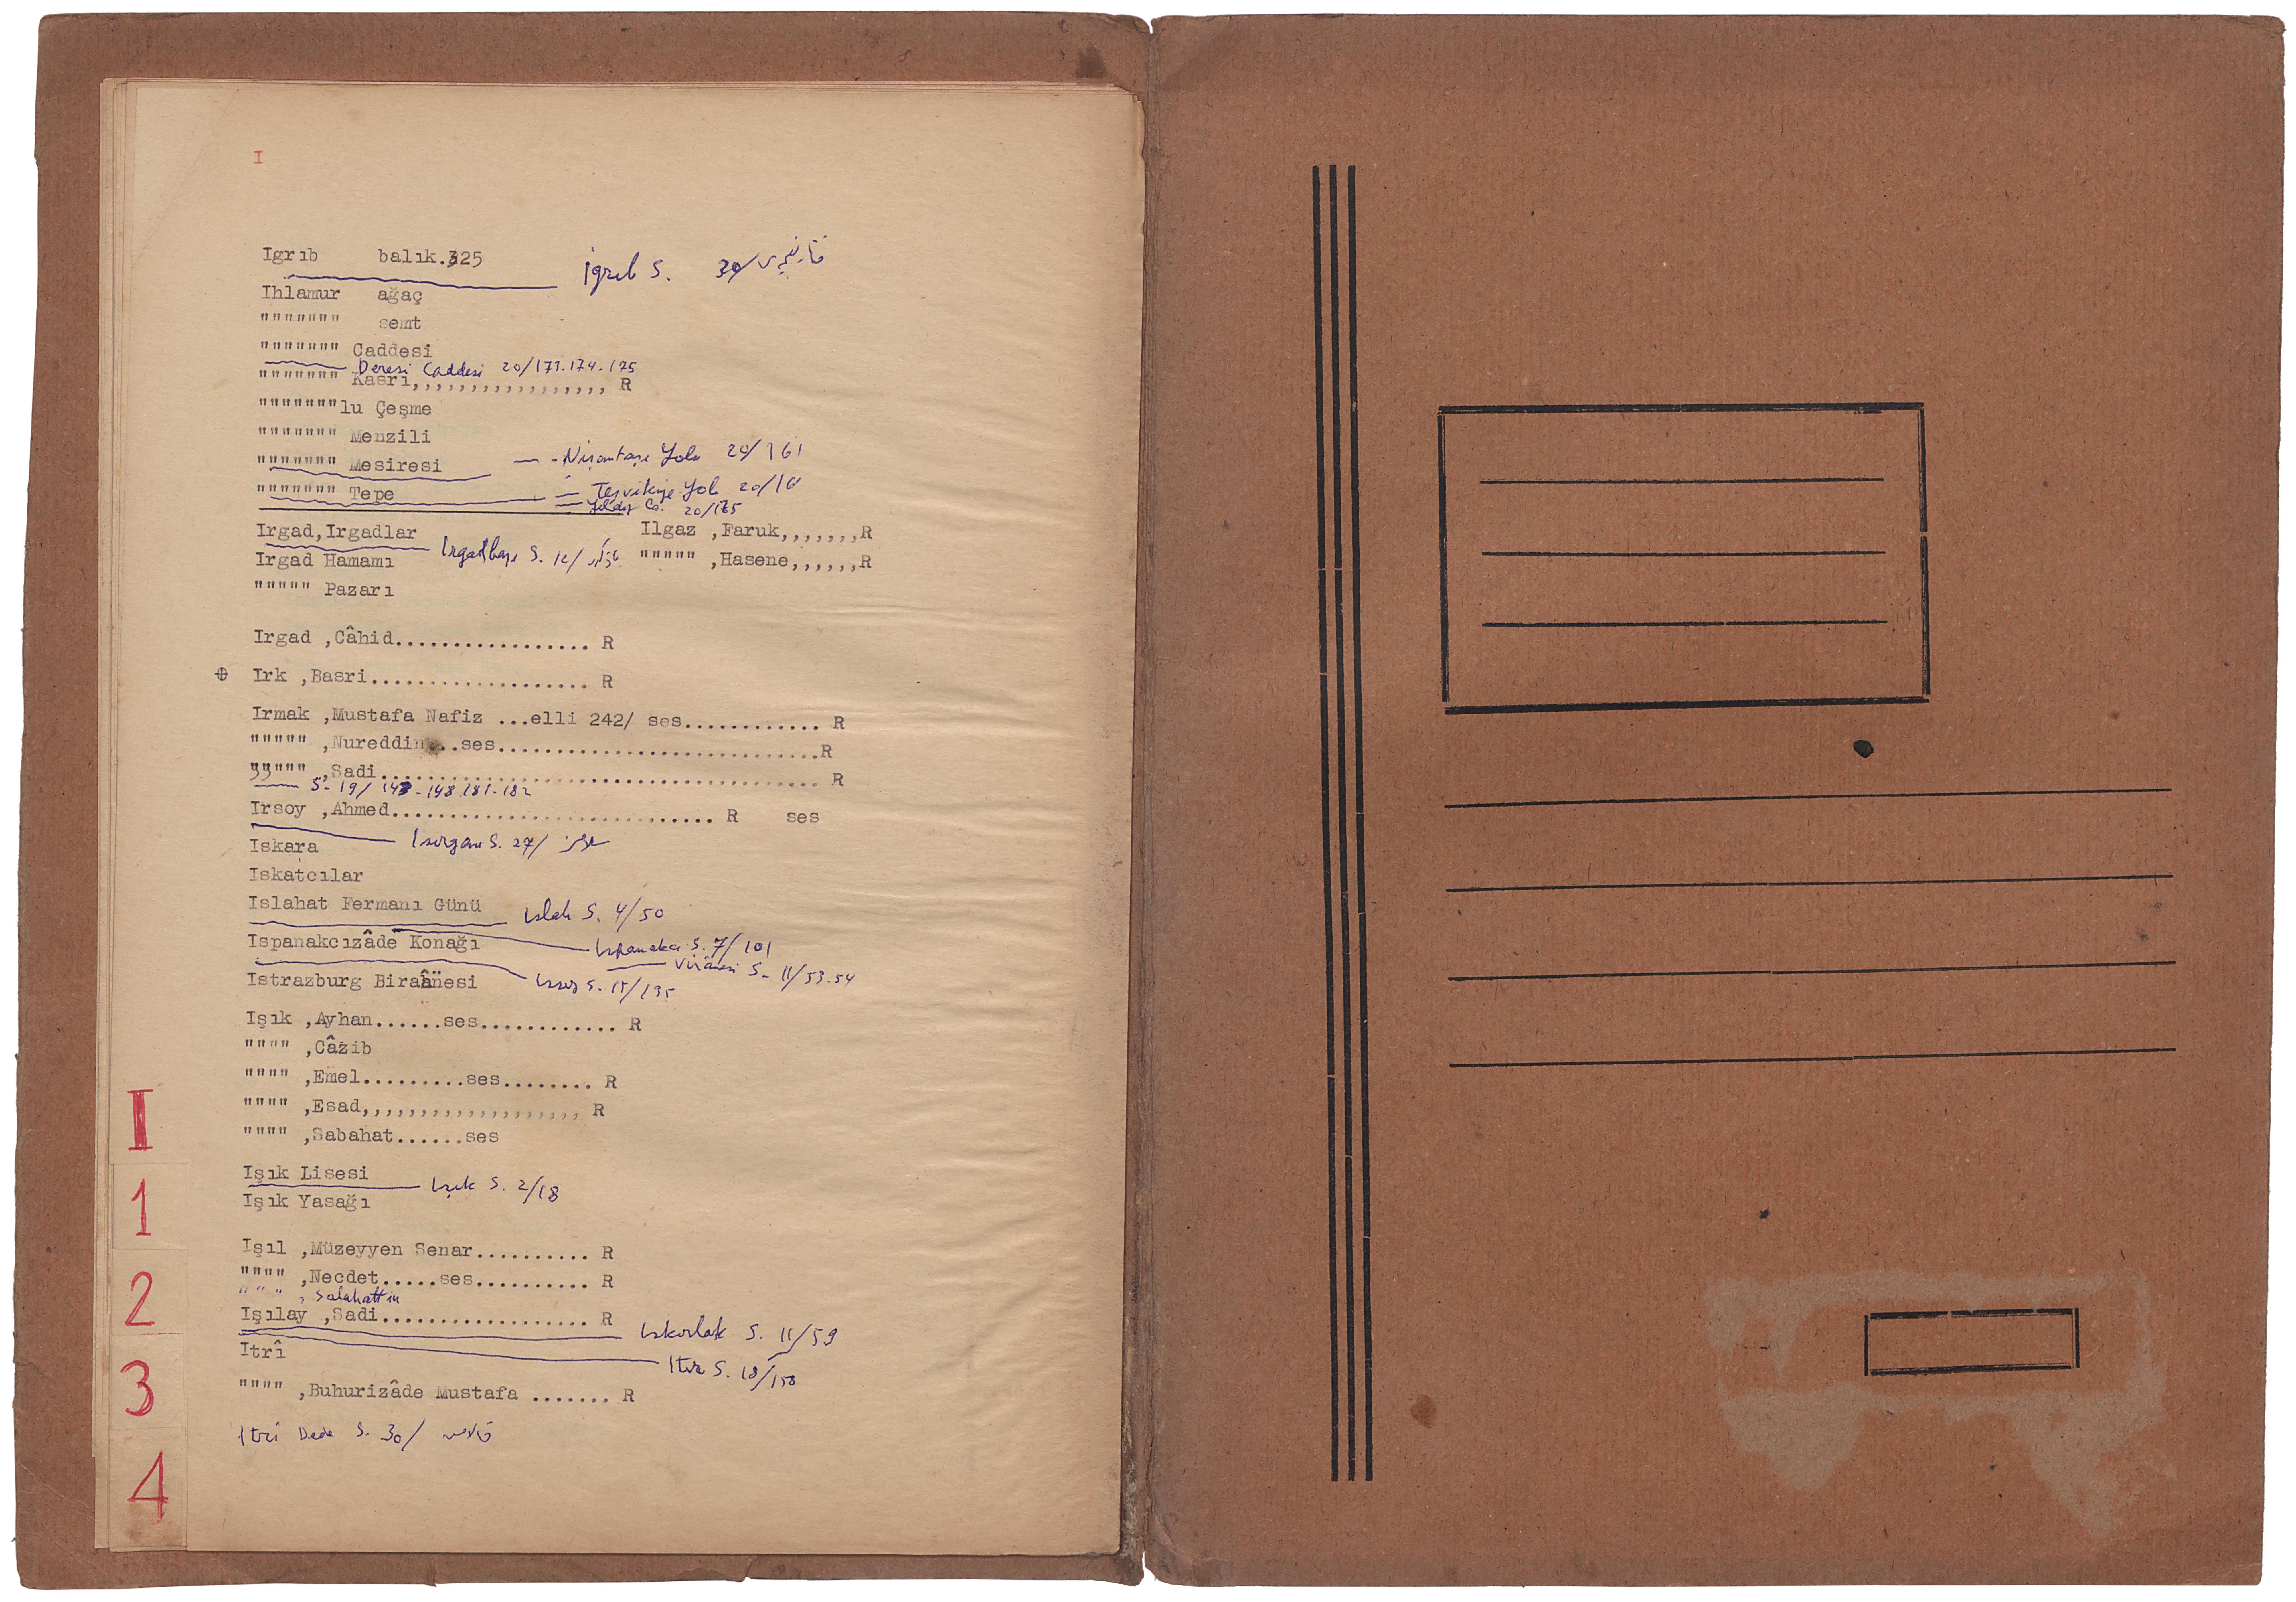 I
Igrıb balık.325 İgrıb S. 30/
Ihlamur ağaç
""""""" semt
""""""" Caddesi
Deresi Caddesi 20/173-174-175
""""""" Kasrı,,,,,,,,,,,,,,,,,, R
"""""""lu Çeşme
""""""" Menzili
""""""" Mesiresi — - Nişantaşı Yolu 20/161
""""""" Tepe — Teşvikiye Yolu 20/16
— Yıldız Ca. 20/175
Irgad,Irgadlar Ilgaz ,Faruk,,,,,,,R
Irgadbaşı S. 12/
Irgad Hamamı """"" ,Hasene,,,,,,R
""""" Pazarı
Irgad ,Câhid................. R
Irk ,Basri................... R
Irmak ,Mustafa Nafiz ...elli 242/ ses............ R
""""" ,Nureddin...ses............................R
""""" ,Sadi...................................... R
S- 19/ 143-148-181-182
Irsoy ,Ahmed............................ R ses
Isırgan S. 27/
Iskara
Iskatcılar
Islahat Fermanı Günü Islah S. 4/50
Ispanakcızâde Konağı Ispanakcı S. 7/101
— Virânesi S- 11/53-54
Istrazburg Biraânesi Issız S. 15/135
Işık ,Ayhan......ses............ R
"""" ,Câzib
"""" ,Emel.........ses........ R
"""" ,Esad,,,,,,,,,,,,,,,,,,, R
"""" ,Sabahat......ses
Işık Lisesi Işık S. 2/18
Işık Yasağı
Işıl ,Müzeyyen Senar.......... R
"""" ,Necdet.....ses.......... R
"""" , Salahattin
Işılay ,Sadi.................. R
Iskarlat S. 11/59
Itrî
Itır S. 18/158
"""" ,Buhurizâde Mustafa ....... R
Itrî Dede S. 30/
I
1
2
3
4